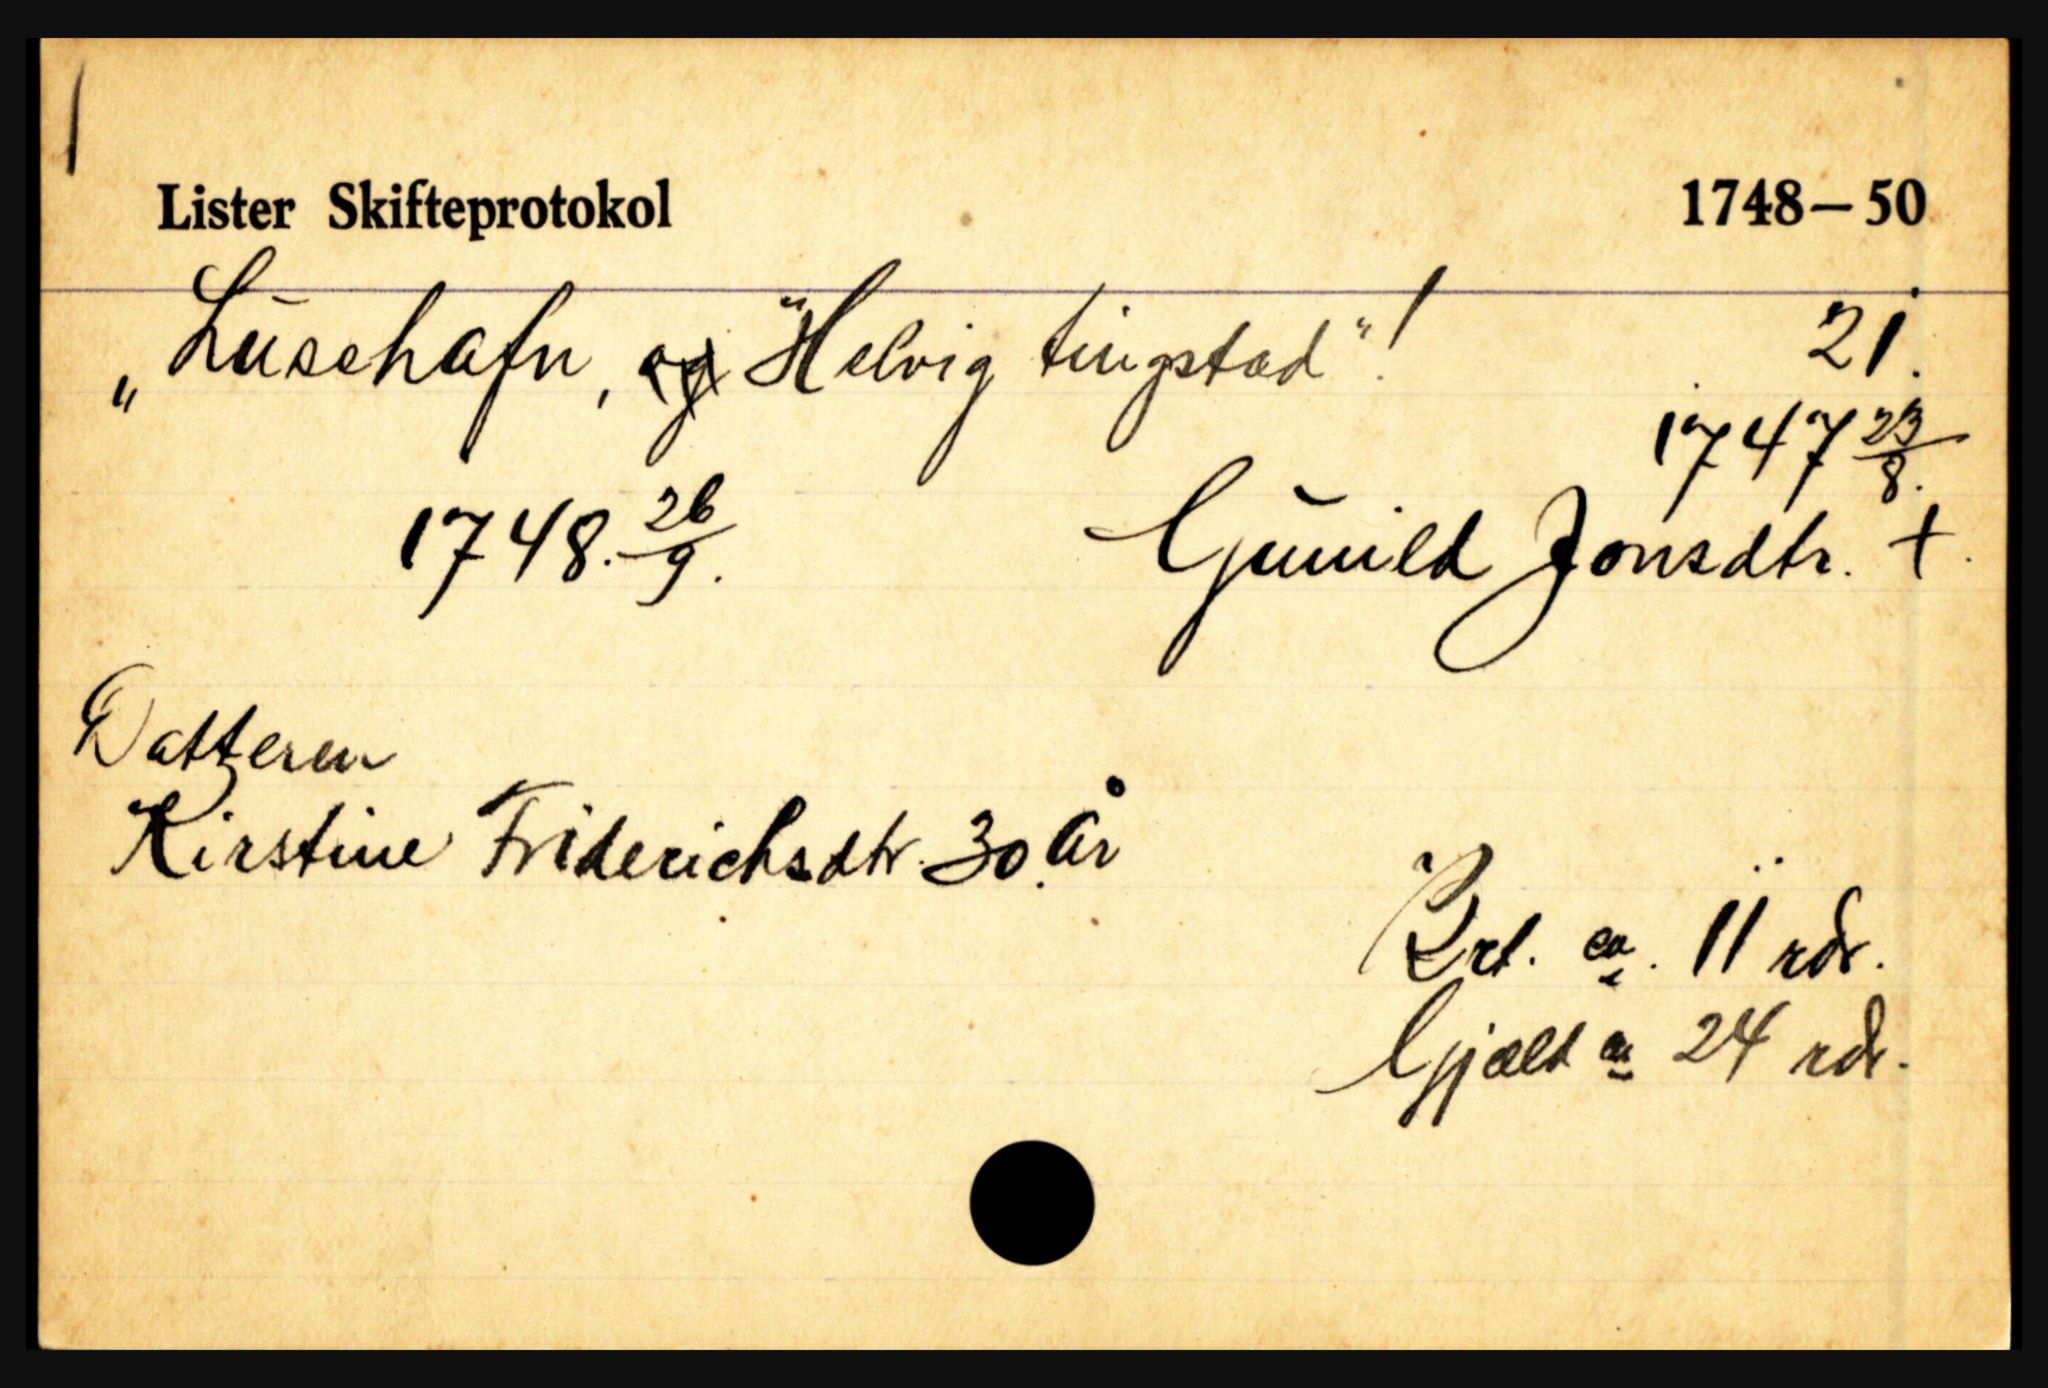 Lister Skifteprotokol 1748–50
„Lusehafn, og "Helvig tingstad"! 21.
1747 23/8.
1748. 26/9. Gunild Jonsdtr. +.
Datteren
Kirstine Friderichsdtr. 30 år
Brt. ca. 11 rdr.
Gjæld ca 24 rdr.